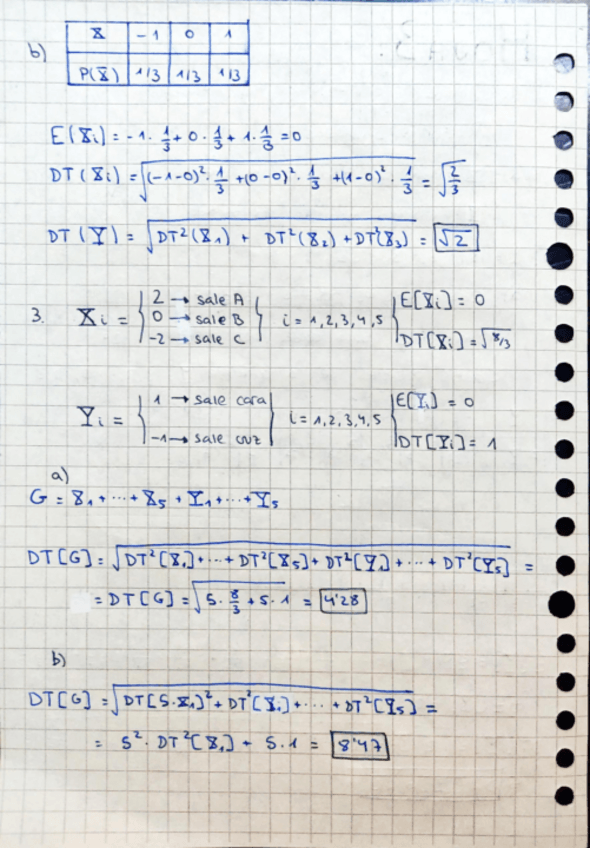 X | -1 | 0 | 1
b)
P(X) | 1/3 | 1/3 | 1/3
E(Xi) = -1 · 1/3 + 0 · 1/3 + 1 · 1/3 = 0
DT(Xi) = √((-1-0)² · 1/3 + (0-0)² · 1/3 + (1-0)² · 1/3) = √(2/3)
DT(Y) = √(DT²(X1) + DT²(X2) + DT²(X3)) = √2
3. Xi = { 2 → sale A
0 → sale B
-2 → sale C } i = 1,2,3,4,5 { E[Xi] = 0
DT[Xi] = √(8/3)
Yi = { 1 → sale cara
-1 → sale cruz } i = 1,2,3,4,5 { E[Yi] = 0
DT[Yi] = 1
a)
G = X1 + ··· + X5 + Y1 + ··· + Y5
DT[G] = √(DT²[X1] + ··· + DT²[X5] + DT²[Y1] + ··· + DT²[Y5]) =
= DT[G] = √(5 · 8/3 + 5 · 1) = 4'28
b)
DT[G] = √(DT[5·X1]² + DT²[Y1] + ··· + DT²[Y5]) =
= 5² · DT²[X1] + 5 · 1 = 8'47